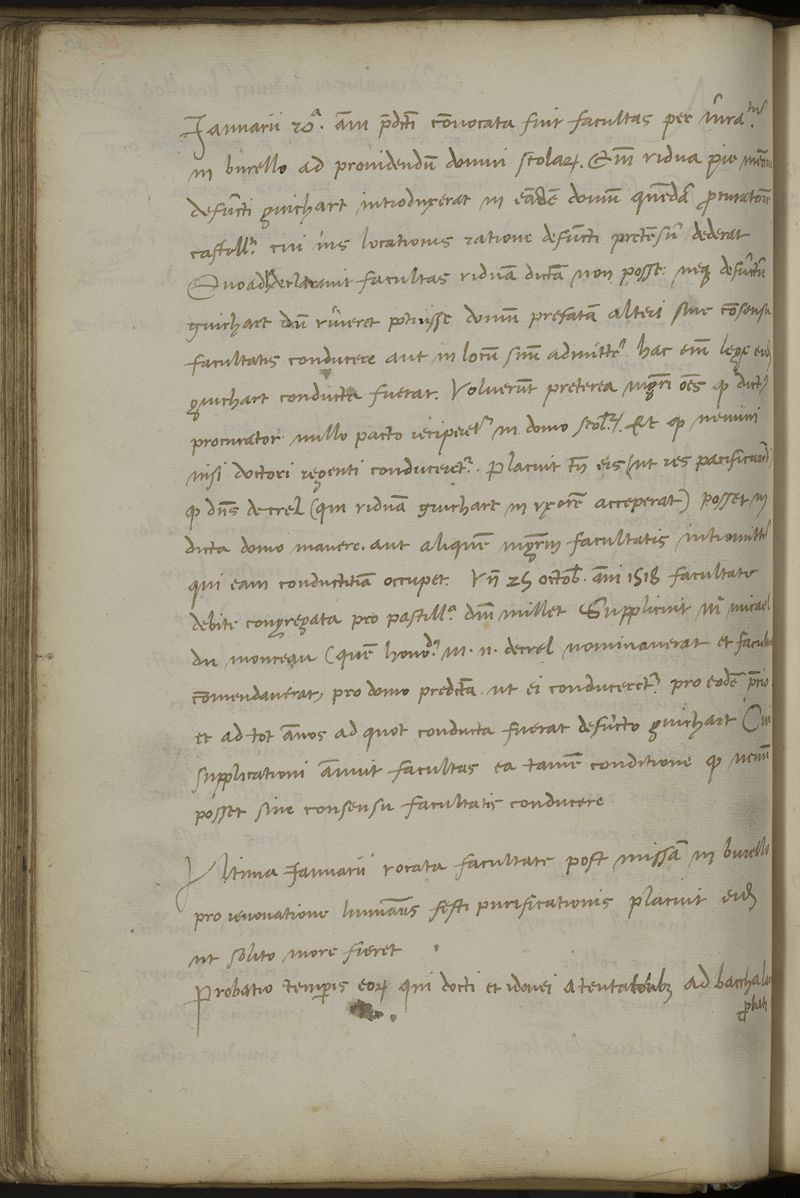 Januarii 20ᵃ. āni p̄dcti cōvocata fuit facultas per iura.ᵐ
in burello ad providendū domui scolaꝝ. Qm̄ vidua pie
defūcti guichart introduxerat in eādē domū quēdā procuratorē
castell.ⁱ cui ius locationis ratione defūcti pretēsū dederat
Quoad declaravit facultas viduā dictā non posse neqꝫ defūctū
guichart dū viveret potuisse domū prefatā alteri sive cōsensu
facultatis conducere aut in locū suū admitte.ʳ hac eni lege
guichart conducta fuerat. Voluerūt preterea mgr̄i oēs qꝫ dict.ˢ
procurator nullo pacto reciperet.ʳ in domo scol.ꝝ. Et qꝫ nemini
nisi doctori regenti conduceret.ʳ. Placuit tn̄ eis (ut res pacificaret)
qꝫ dn̄s decrel (qui viduā guichart in uxorē acceperat) posset in
dicta domo manere. aut aliquē mgr̄m facultatis intromitte
qui eam conductitiā occupet. Vn̄ 25 octob. āni 1518 facultate
debite congregata pro pastill.ᵃ dn̄i millet Supplicuit mʳ micael
du moncequ (quē honod.ˢ m. n. decrel nominaverat et facult
cōmendaverat) pro domo predicta. ut ei conduceret.ʳ pro eodē p̄cio
et ad tot ānos ad quot conducta fuerat defūcto guichart Cui
supplicationi ānuit facultas ea tamē conditione qꝫ nemī
posset sine consensu facultatis conducere
Ultima Januarii vocata facultate post missā in burello
pro renovatione festi purificationis placuit
ut solito more fieret
Probatio temp̄is eoꝝ qui docti et idonei a tentatoribꝫ ad bacchala